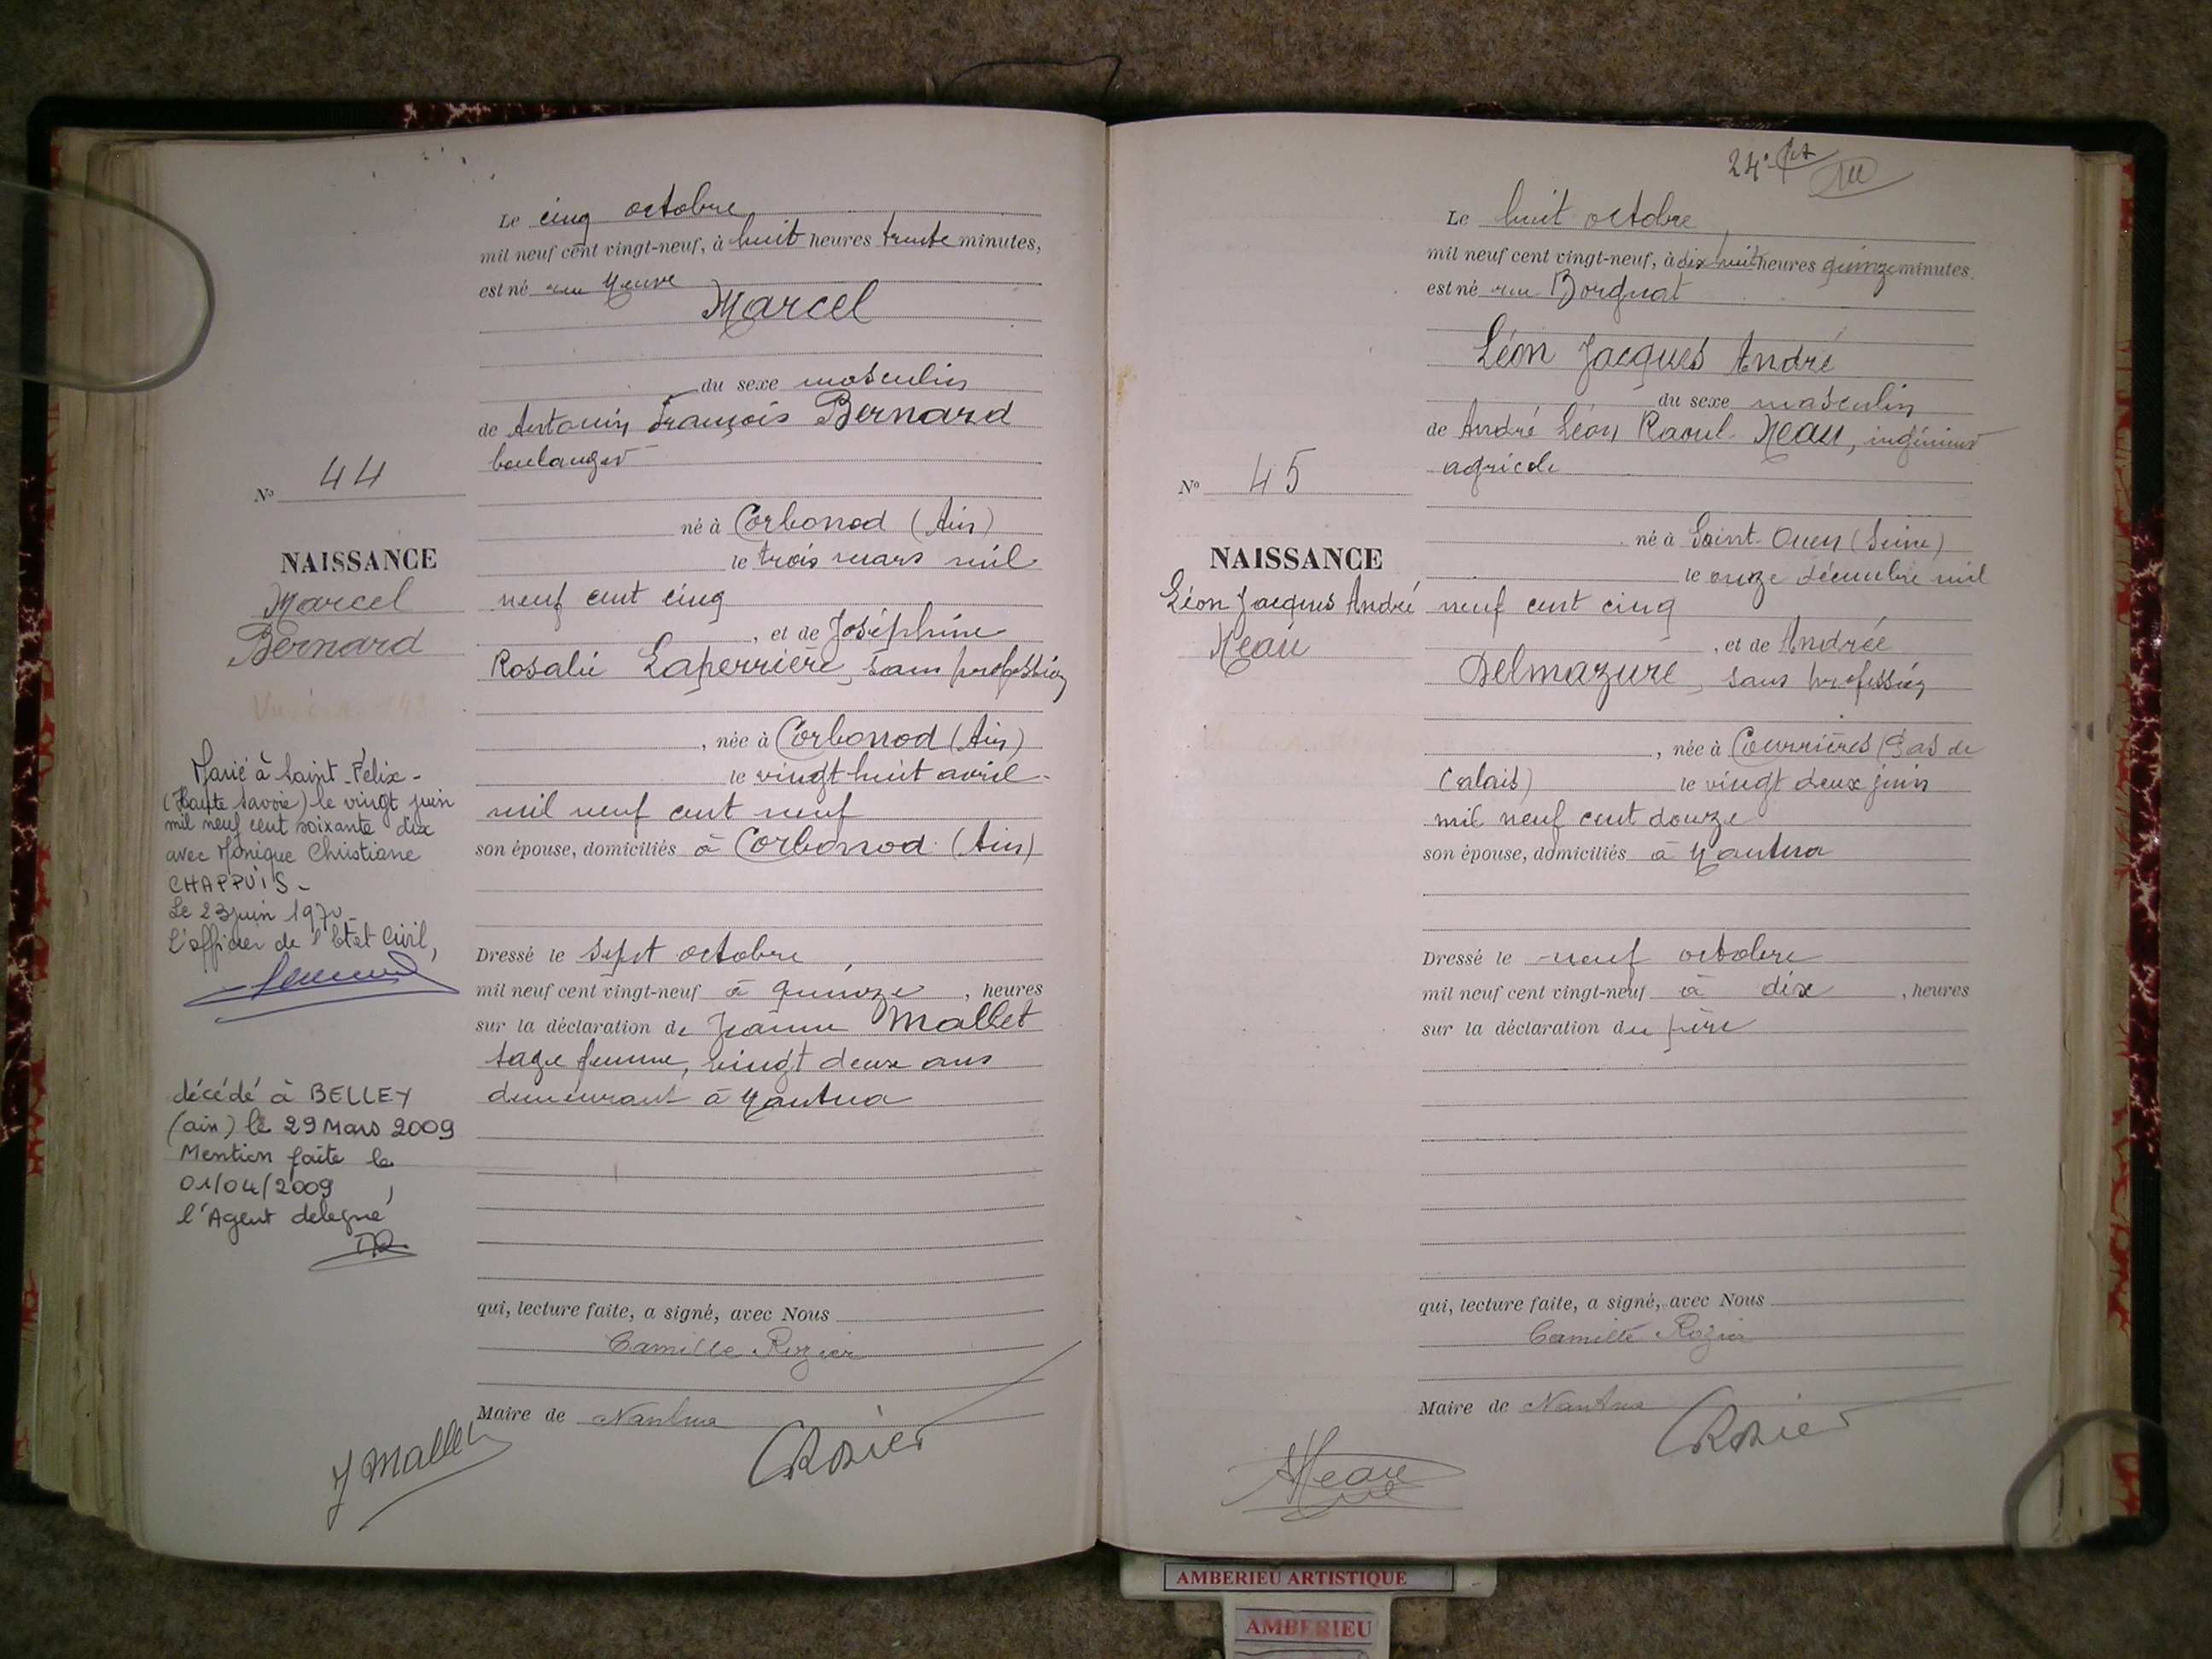 Le cinq octobre
mil neuf cent vingt-neuf, à huit heures trente minutes,
est né rue Neuve
Marcel
du sexe masculin
de Antonin François Bernard
boulanger
né à Corbonod (Ain)
le trois mars mil
neuf cent cinq
, et de Joséphine
Rosalie Laperrière, sans profession
, née à Corbonod (Ain)
le vingt huit avril
mil neuf cent neuf
son épouse, domiciliés à Corbonod (Ain)
Dressé le sept octobre,
mil neuf cent vingt-neuf à quinze, heures
sur la déclaration de Jeanne Mallet
sage femme, vingt deux ans
demeurant à Nantua
qui, lecture faite, a signé, avec Nous
Camille Rozier
Maire de Nantua
J Mallet
CRozier
No 44
NAISSANCE
Marcel
Bernard
Marié à Saint-Félix-
(Haute Savoie) le vingt juin
mil neuf cent soixante dix
avec Monique Christiane
CHAPPUIS-
Le 23 juin 1970-
L'officier de l'Etat Civil,
décédé à BELLEY
(ain) le 29 Mars 2009
Mention faite le
01/04/2009,
l'Agent délégué
24e
Le huit octobre
mil neuf cent vingt-neuf, à dix huit heures quinze minutes.
est né rue Borgnat
Léon Jacques André
du sexe masculin
de André Léon Raoul Neau, ingénieur
agricole
né à Saint-Ouen (Seine)
le onze décembre mil
neuf cent cinq
, et de Andrée
Delmazure, sans profession
, née à Courrières (Pas de
Calais) le vingt deux juin
mil neuf cent douze
son épouse, domiciliés à Nantua
Dressé le neuf octobre
mil neuf cent vingt-neuf à dix, heures
sur la déclaration du père
qui, lecture faite, a signé, avec Nous
Camille Rozier
Maire de Nantua
CRozier
ANeau
No 45
NAISSANCE
Léon Jacques André
Neau
AMBERIEU ARTISTIQUE
AMBERIEU